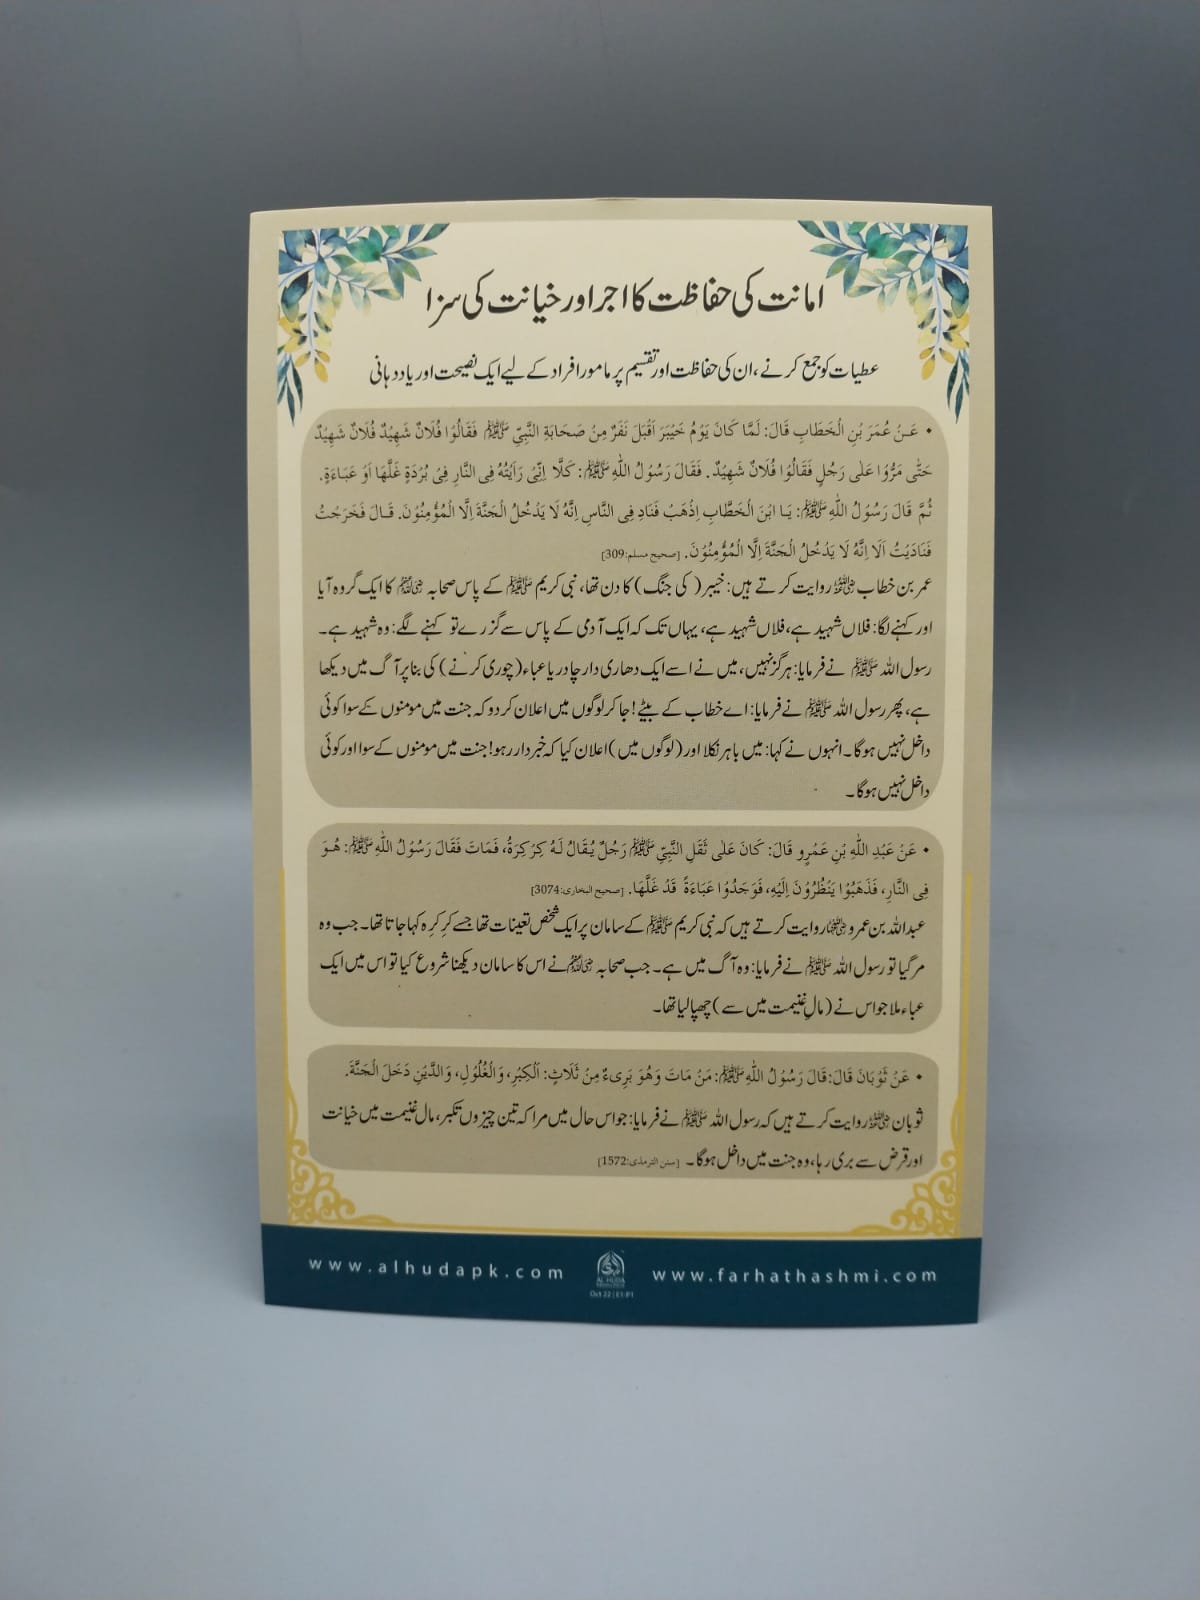 امانت کی حفاظت کا اجر اور خیانت کی سزا
عطیات کو جمع کرنے، ان کی حفاظت اور تقسیم پر مامور افراد کے لیے ایک نصیحت اور یاددہانی
• عَنْ عُمَرَ بْنِ الْخَطَابِ قَالَ: لَمَّا کَانَ یَوْمُ خَیْبَرَ اَقْبَلَ نَفَرٌ مِنْ صَحَابَةِ النَّبِیِّ ﷺ فَقَالُوْا فُلَانٌ شَھِیْدٌ فُلَانٌ شَھِیْدٌ
حَتّٰی مَرُّوْا عَلٰی رَجُلٍ فَقَالُوْا فُلَانٌ شَھِیْدٌ . فَقَالَ رَسُوْلُ اللّٰهِ ﷺ: کَلَّا اِنِّیْ رَاَیْتُهُ فِی النَّارِ فِیْ بُرْدَةٍ غَلَّھَا اَوْ عَبَاءَةٍ.
ثُمَّ قَالَ رَسُوْلُ اللّٰهِ ﷺ: یَا ابْنَ الْخَطَّابِ اِذْھَبْ فَنَادِ فِی النَّاسِ اِنَّهُ لَا یَدْخُلُ الْجَنَّةَ اِلَّا الْمُؤْمِنُوْنَ. قَالَ فَخَرَجْتُ
فَنَادَیْتُ اَلَا اِنَّهُ لَا یَدْخُلُ الْجَنَّةَ اِلَّا الْمُؤْمِنُوْنَ. [صحیح مسلم:309]
عمر بن خطاب ؓ روایت کرتے ہیں: خیبر (کی جنگ) کا دن تھا، نبی کریم ﷺ کے پاس صحابہ ؓ کا ایک گروہ آیا
اور کہنے لگا: فلاں شہید ہے، فلاں شہید ہے، یہاں تک کہ ایک آدمی کے پاس سے گزرے تو کہنے لگے: وہ شہید ہے۔
رسول اللہ ﷺ نے فرمایا: ہرگز نہیں، میں نے اسے ایک دھاری دار چادر یا عباء (چوری کرنے) کی بنا پر آگ میں دیکھا
ہے، پھر رسول اللہ ﷺ نے فرمایا: اے خطاب کے بیٹے! جا کر لوگوں میں اعلان کر دو کہ جنت میں مومنوں کے سوا کوئی
داخل نہیں ہوگا۔ انہوں نے کہا: میں باہر نکلا اور (لوگوں میں) اعلان کیا کہ خبردار رہو! جنت میں مومنوں کے سوا اور کوئی
داخل نہیں ہوگا۔
• عَنْ عَبْدِ اللّٰهِ بْنِ عَمْرٍو قَالَ: کَانَ عَلٰی ثَقَلِ النَّبِیِّ ﷺ رَجُلٌ یُقَالُ لَهُ کِرْکِرَةُ، فَمَاتَ فَقَالَ رَسُوْلُ اللّٰهِ ﷺ: ھُوَ
فِی النَّارِ، فَذَھَبُوْا یَنْظُرُوْنَ اِلَیْهِ، فَوَجَدُوْا عَبَاءَةً قَدْ غَلَّھَا. [صحیح البخاری:3074]
عبداللہ بن عمرو ؓ روایت کرتے ہیں کہ نبی کریم ﷺ کے سامان پر ایک شخص تعینات تھا جسے کرکرہ کہا جاتا تھا۔ جب وہ
مر گیا تو رسول اللہ ﷺ نے فرمایا: وہ آگ میں ہے۔ جب صحابہ ؓ نے اس کا سامان دیکھنا شروع کیا تو اس میں ایک
عباء ملا جو اس نے (مالِ غنیمت میں سے) چھپا لیا تھا۔
• عَنْ ثَوْبَانَ قَالَ: قَالَ رَسُوْلُ اللّٰهِ ﷺ: مَنْ مَاتَ وَھُوَ بَرِیءٌ مِنْ ثَلَاثٍ: اَلْکِبْرِ، وَالْغُلُوْلِ، وَالدَّیْنِ دَخَلَ الْجَنَّةَ.
ثوبان ؓ روایت کرتے ہیں کہ رسول اللہ ﷺ نے فرمایا: جو اس حال میں مرا کہ تین چیزوں تکبر، مال غنیمت میں خیانت
اور قرض سے بری رہا، وہ جنت میں داخل ہوگا۔ [سنن الترمذی:1572]
www.alhudapk.com
AL HUDA
www.farhathashmi.com